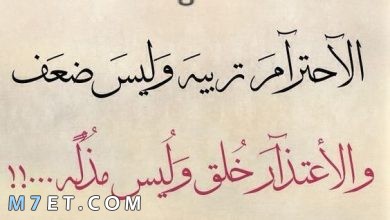 الآحترآمَ تربيه وَليسَ ضعَف
والأعتذآر خُلق وَلُيس مذُلًه ...!!
M7ET.COM